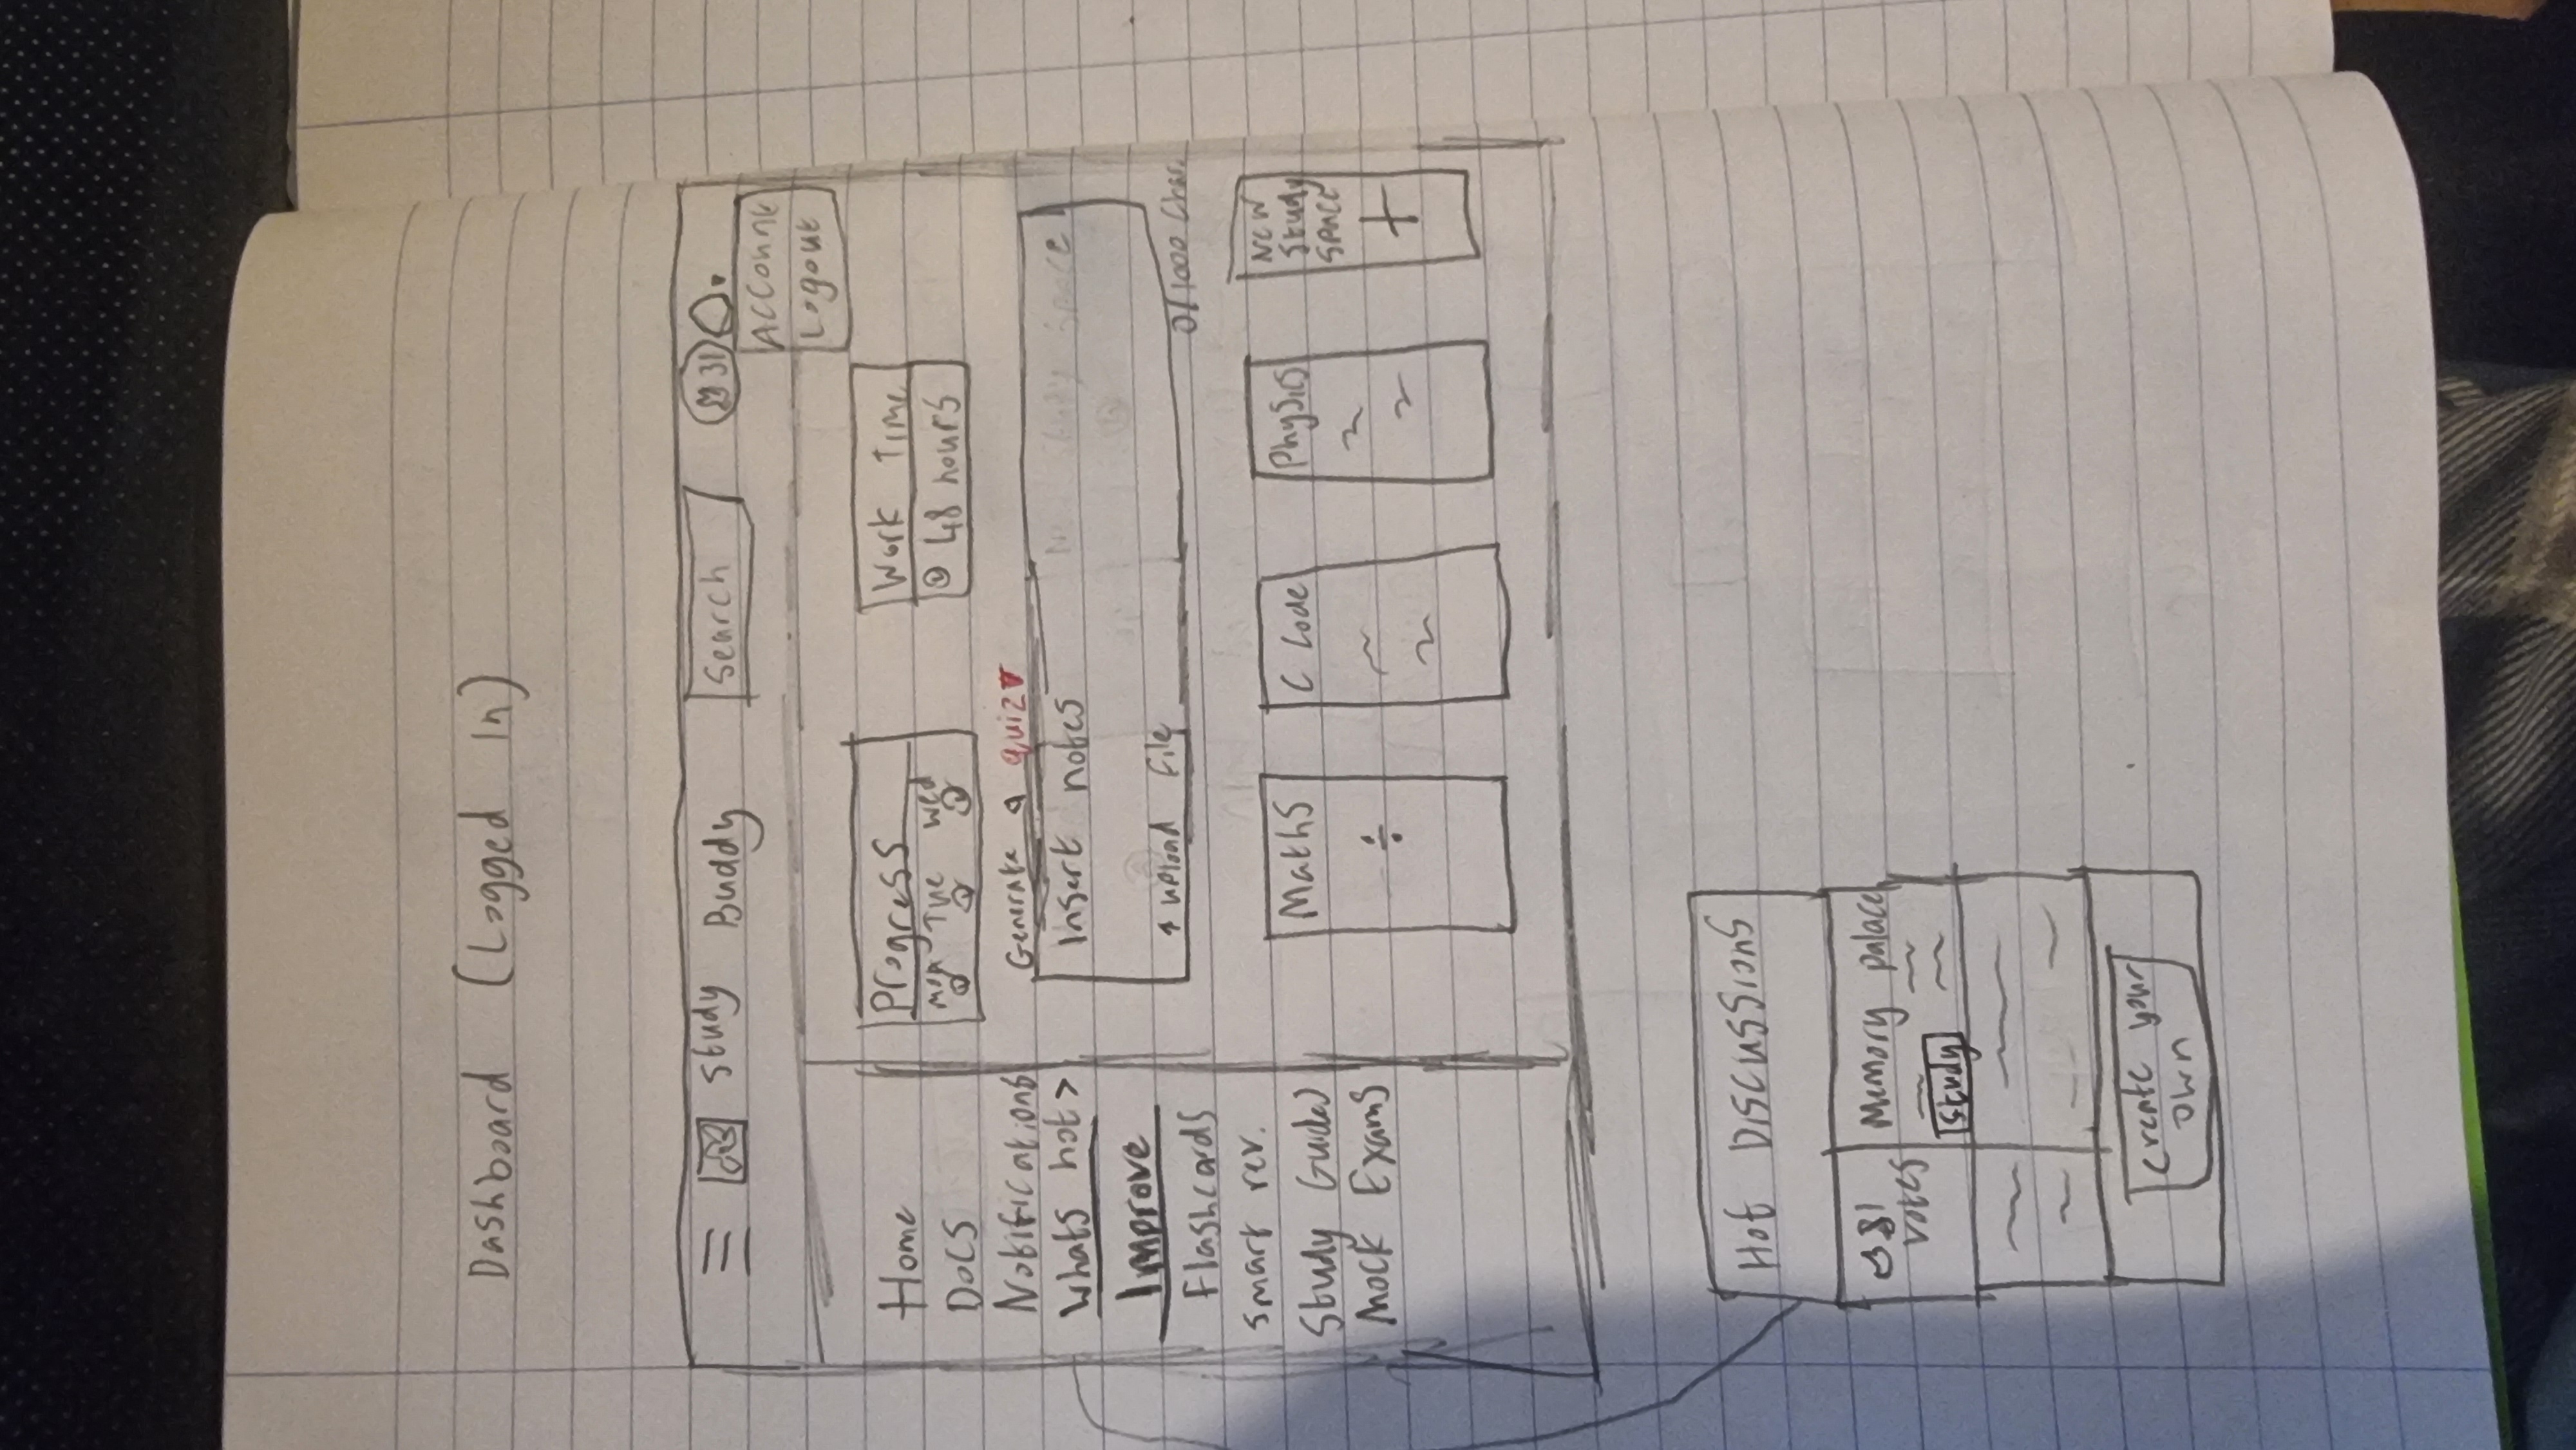 Dashboard (Logged In)
Study Buddy
Search
31
Account
Logout
Home
Docs
Notifications
Whats hot >
Improve
Flashcards
Smart rev.
Study Guides
Mock Exams
Progress
Mon Tue Wed
Work Time
48 hours
Generate a quiz
Insert notes
↑ upload file
0/1000 Char.
Maths
÷
C Code
Physics
New
Study
Space
+
Hot Discussions
81
votes
Memory palace
Study
Create your
own